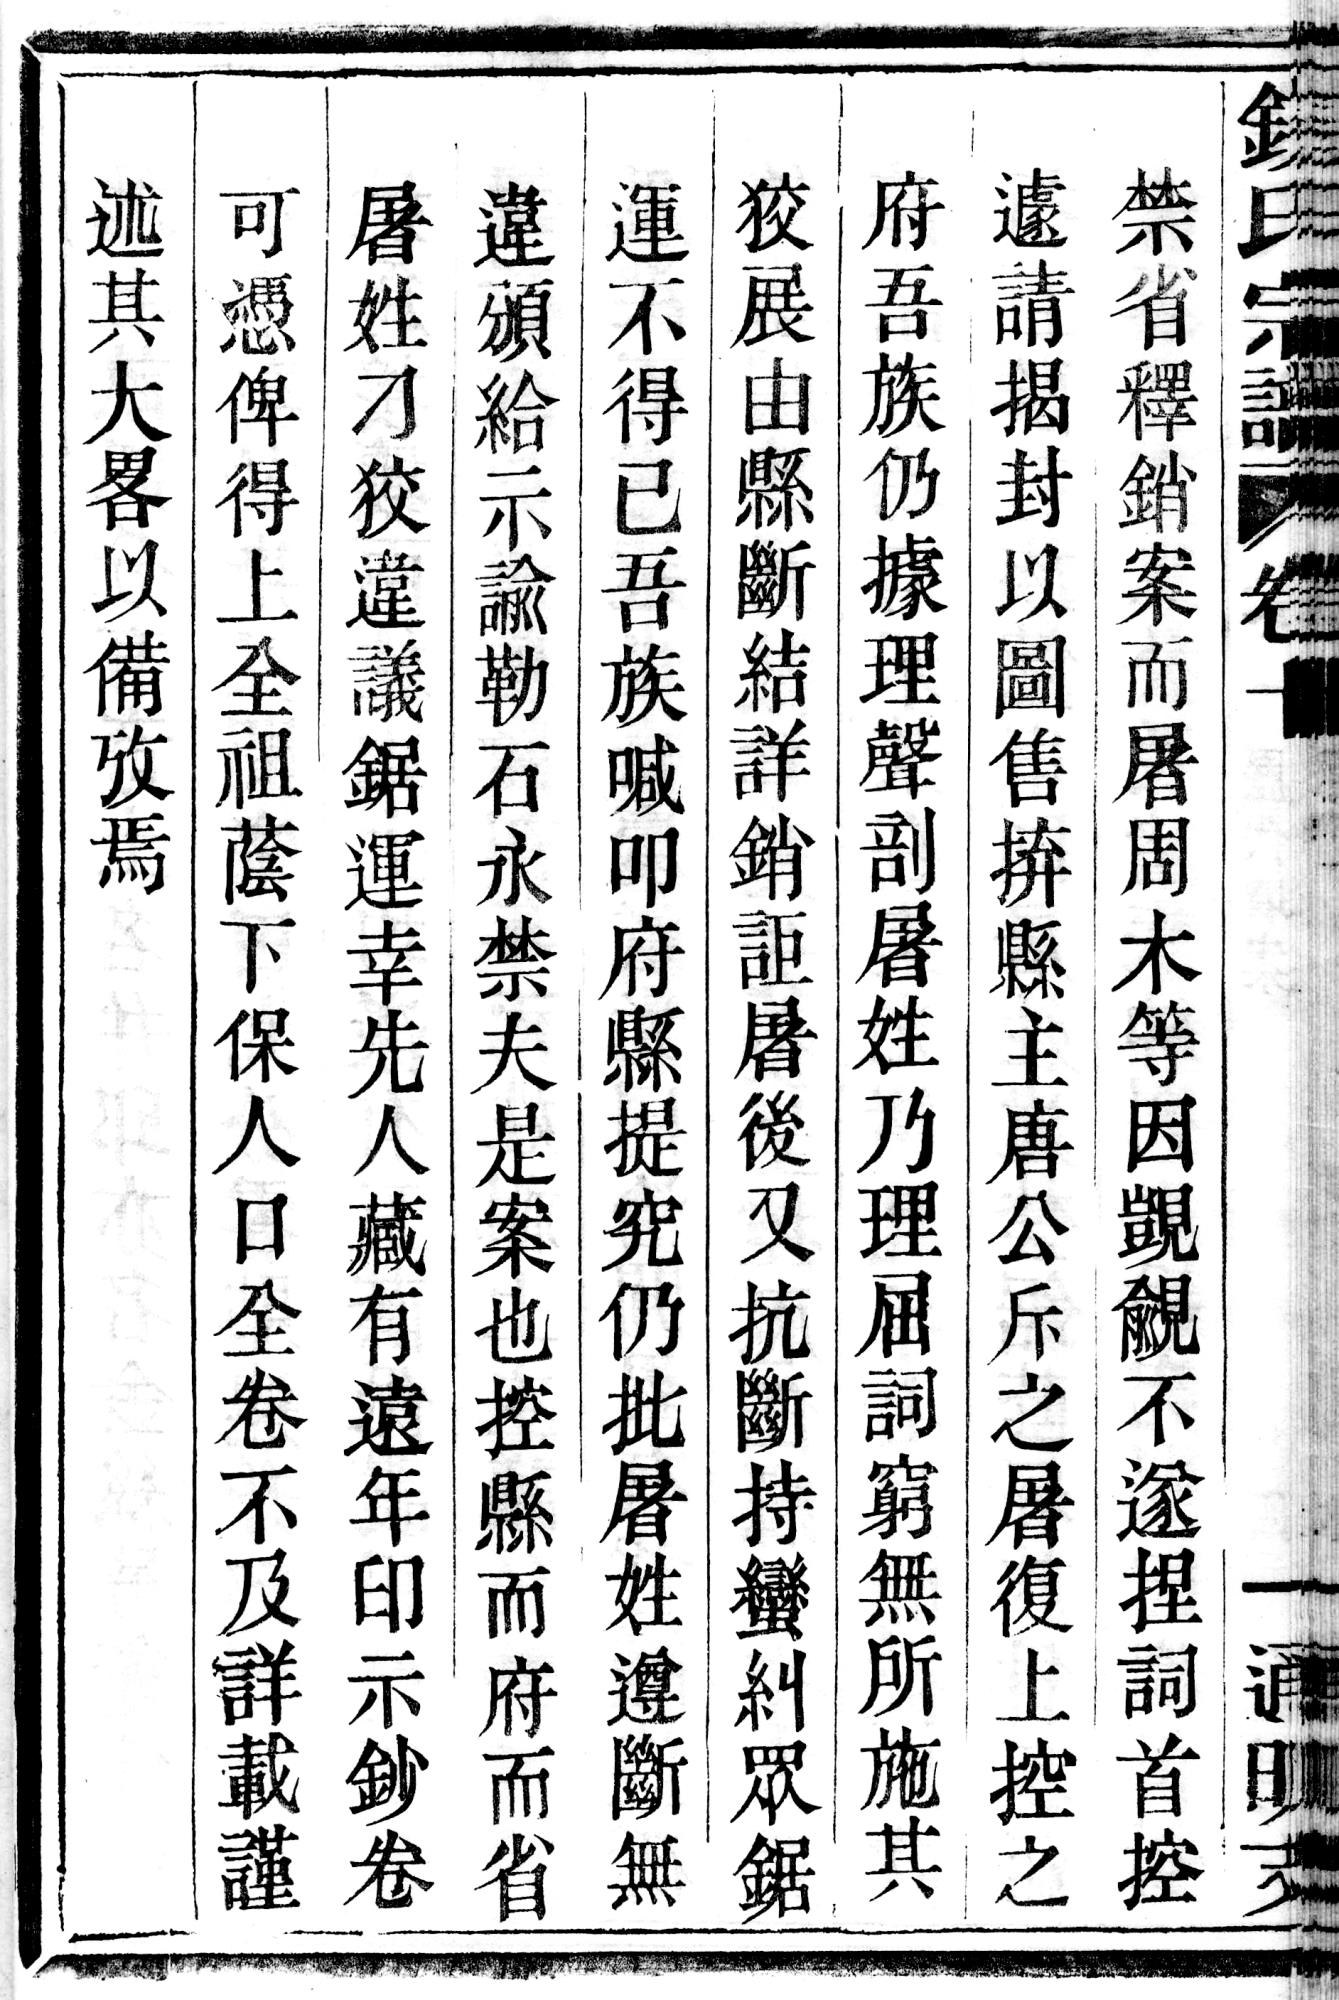 氏宗譜 卷一
禁省釋銷案而屠周木等因覬覦不遂捏詞首控
遽請揭封以圖售拚縣主唐公斥之屠復上控之
府吾族仍據理聲剖屠姓乃理屈詞窮無所施其
狡展由縣斷結詳銷詎屠後又抗斷持蠻糾眾鋸
運不得已吾族喊叩府縣提究仍批屠姓遵斷無
違頒給示諭勒石永禁夫是案也控縣而府而省
屠姓刁狡違議鋸運幸先人藏有遠年印示鈔卷
可憑俾得上全祖蔭下保人口全卷不及詳載謹
述其大畧以備攷焉